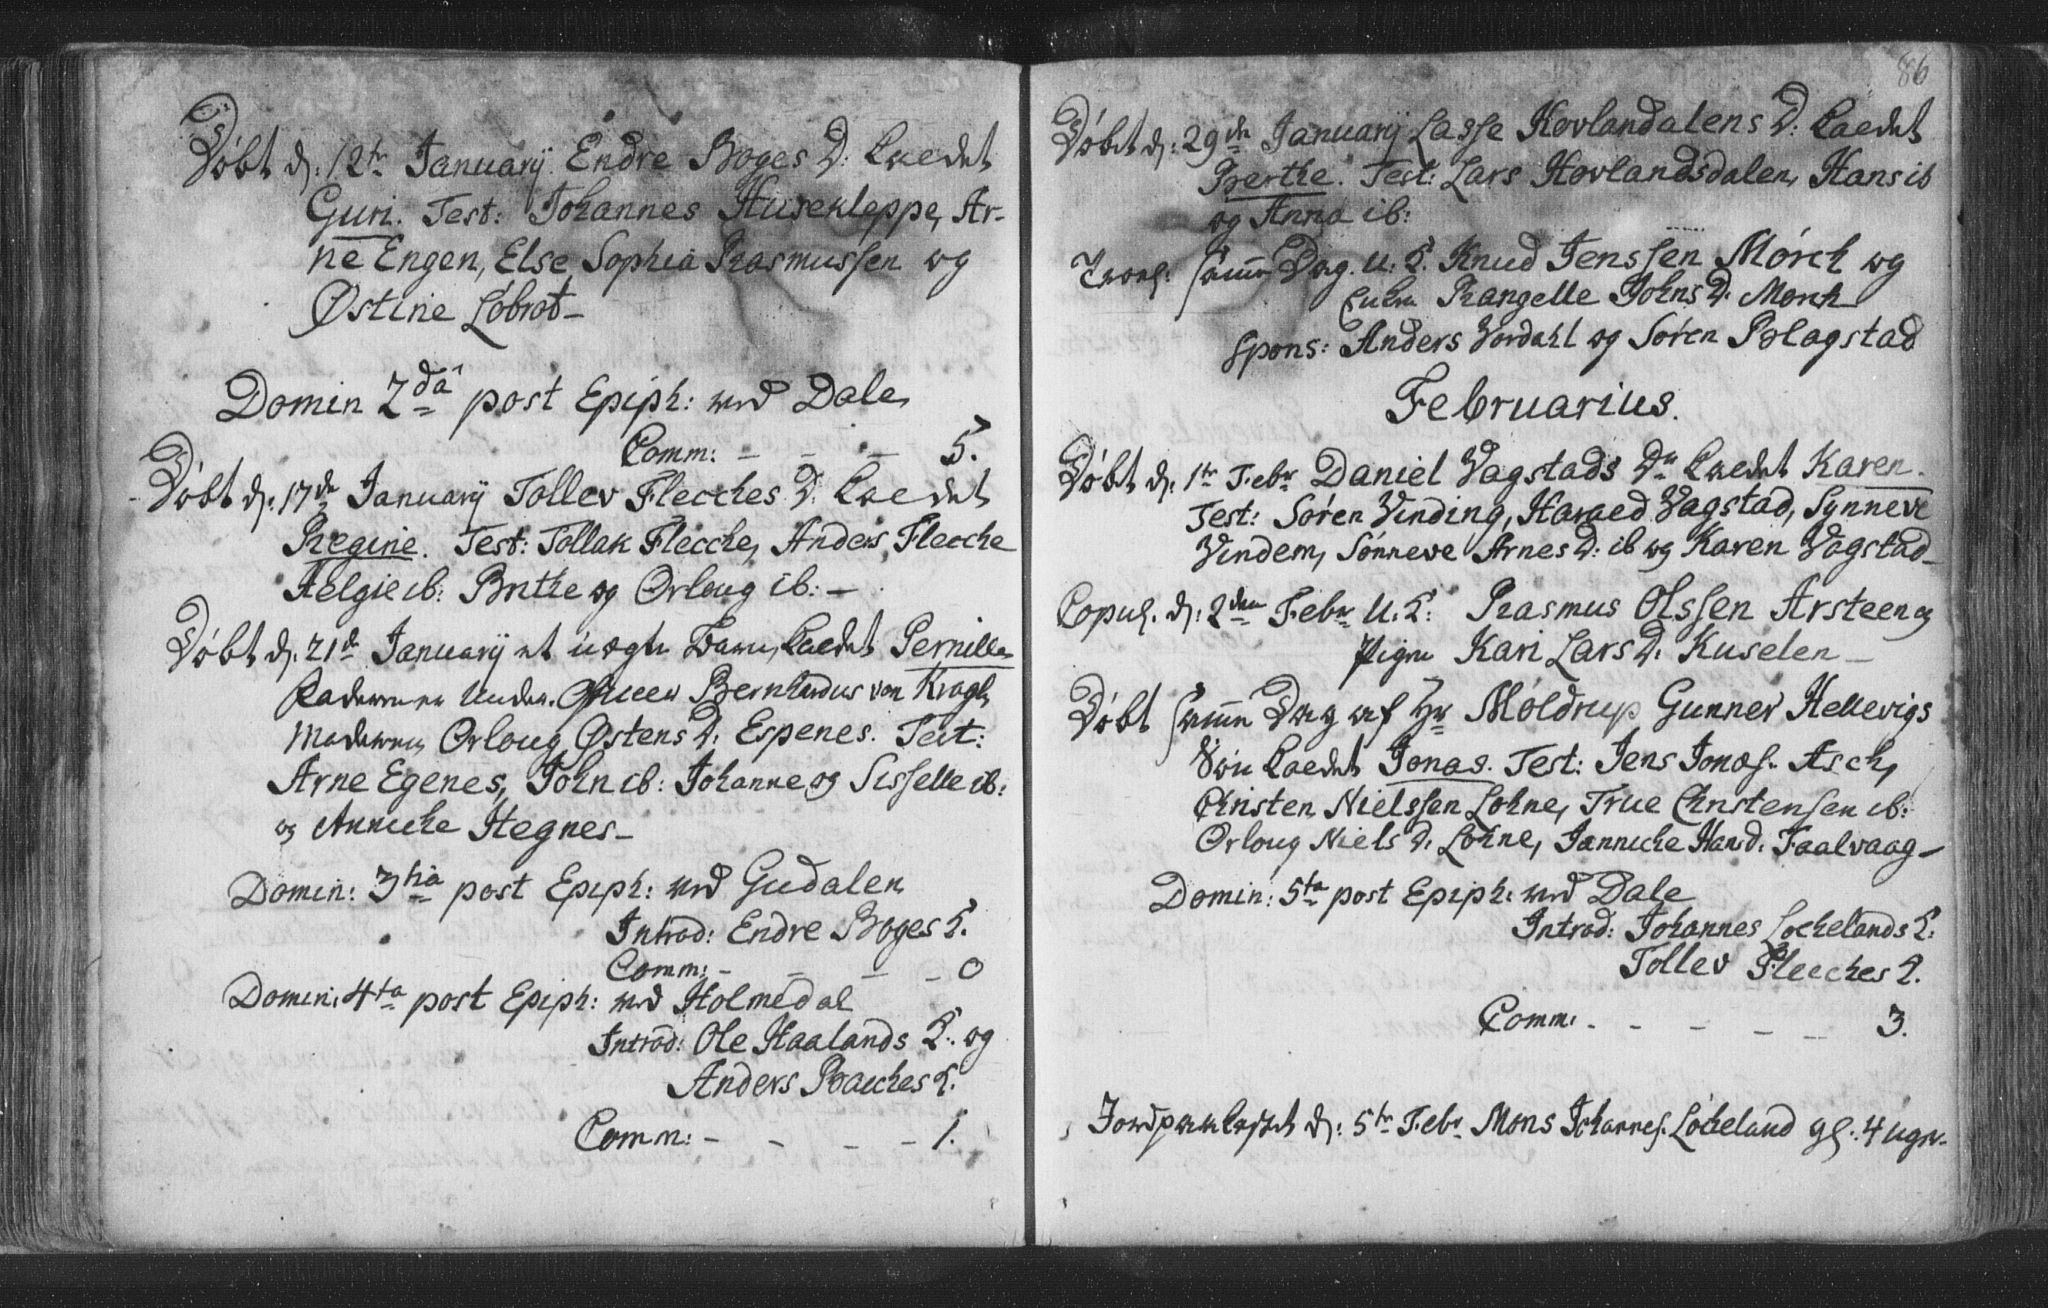 Døbt d: 12te Januarij Endre Boges D: kaldet
Guri. Test: Johannes Husekleppe, Ar-
ne Engen, Else Sophia Rasmussen og
Østine Løbrot_
Domin 2dâ post Epiph: ved Dale
Comm: - - - 5.
Døbt d: 17de Januarij Tollev Flecches D. kaldet
Regine. Test: Tollak Flecche, Anders Flecche
Helgie ib: Brithe og Orloug ib: _
Døbt d. 21de Januarij et uægte Barn, kaldet Pernille
Faderen er Under. Officeer Bernhardus von Kragh,
Moderen Orloug Østens D. Espenes. Test:
Arne Egenes, John ib: Johanne og Sisselle ib:
og Anniche Hegnes_
Domin: 3tia post Epiph: ved Gudalen
Introd: Endre Boges K.
Comm: - - - - 0
Domin: 4ta post Epiph: ved Holmedal
Introd: Ole Haalands K. og
Anders Bacches K.
Comm: - - - - 1.
86
Døbt d: 29de Januarij Lasse Hovlandalens D: kaldet
Berthe. Test: Lars Hovlandsdalen, Hans ib
og Anna ib:
Trol: samme Dag. U. K. Knud Jenssen Mørch og
Enken Rangelle Johns D. Mørch
Spons: Anders Vordahl og Søren Blagstad
Februarius.
Døbt d: 1te Febr Daniel Vagstads Dr kaldet Karen.
Test: Søren Vinding, Haraed Vagstad, Synneve
Vindem, Sønneve Arnes D: ib og Karen Vagstad_
Copul. d: 2den Febr U. K: Rasmus Olssen Arsteen og
Pigen Kari Lars D. Kuselen _
Døbt samme Dag af Hr Møldrup Gunner Hellevigs
Søn kaldet Jonas. Test: Jens Jonæs. Asch,
Christen Nielssen Lohne, True Christensen ib:
Orloug Niels D. Lohne, Jannicke Hansd. Faalvaag_
Domin: 5ta post Epiph: ved Dale
Introd: Johannes Lochelands K:
Tollev Flecches K.
Comm: - - - - - 3.
Jordpaakastet d: 5te Febr Mons Johannes. Løcheland gl: 4 uger.